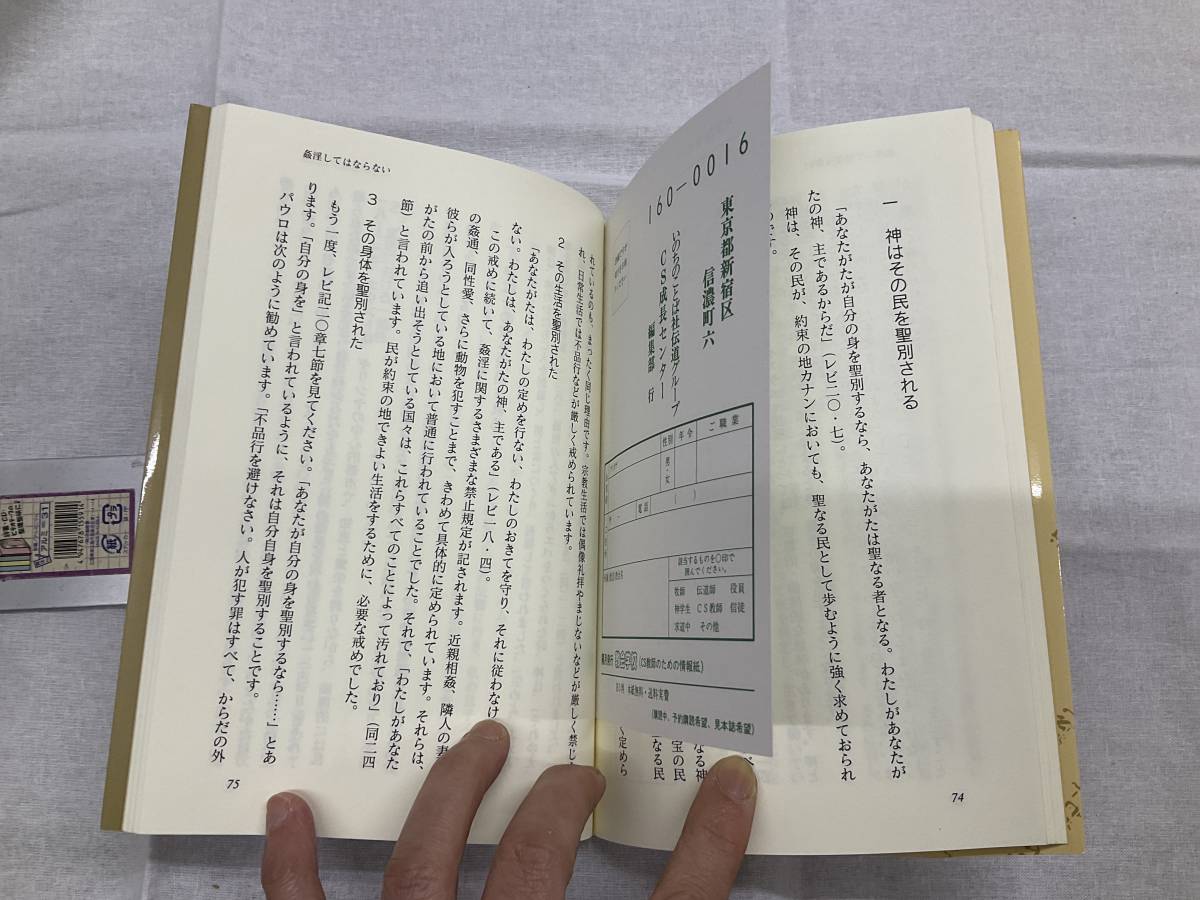 一 神はその民を聖別される
「あなたがたが自分の身を聖別するなら、あなたがたは聖なる者となる。わたしがあなたが
たの神、主であるからだ」（レビ二〇・七）。
神は、その民が、約束の地カナンにおいても、聖なる民として歩むように強く求めておられ
です。
なる神
宝の民
なる民
く定めら
74
160-0016
東京都新宿区
信濃町六
いのちのことば社伝道グループ
CS成長センター
編集部 行
ご職業
年令
性別
男・女
電話
( )
該当するものを○印で
囲んでください。
牧師 伝道師 役員
神学生 CS教師 信徒
求道中 その他
(CS教師のための情報紙)
(購読中、予約購読希望、見本誌希望)
姦淫してはならない
れているのも、まったく同じ理由です。宗教生活では偶像礼拝やまじないなどが厳しく禁じ
れ、日常生活では不品行などが厳しく戒められています。
2 その生活を聖別された
「あなたがたは、わたしの定めを行ない、わたしのおきてを守り、それに従わなけ
ない。わたしは、あなたがたの神、主である」（レビ一八・四）。
この戒めに続いて、姦淫に関するさまざまな禁止規定が記されます。近親相姦、隣人の妻
の姦通、同性愛、さらに動物を犯すことまで、きわめて具体的に定められています。それらは、
彼らが入ろうとしている地において普通に行われていることでした。それで、「わたしがあなた
がたの前から追い出そうとしている国々は、これらすべてのことによって汚れており」（同二四
節）と言われています。民が約束の地できよい生活をするために、必要な戒めでした。
3 その身体を聖別された
もう一度、レビ記二〇章七節を見てください。「あなたがたが自分の身を聖別するなら……」とあ
ります。「自分の身を」と言われているように、それは自分自身を聖別することです。
パウロは次のように勧めています。「不品行を避けなさい。人が犯す罪はすべて、からだの外
75